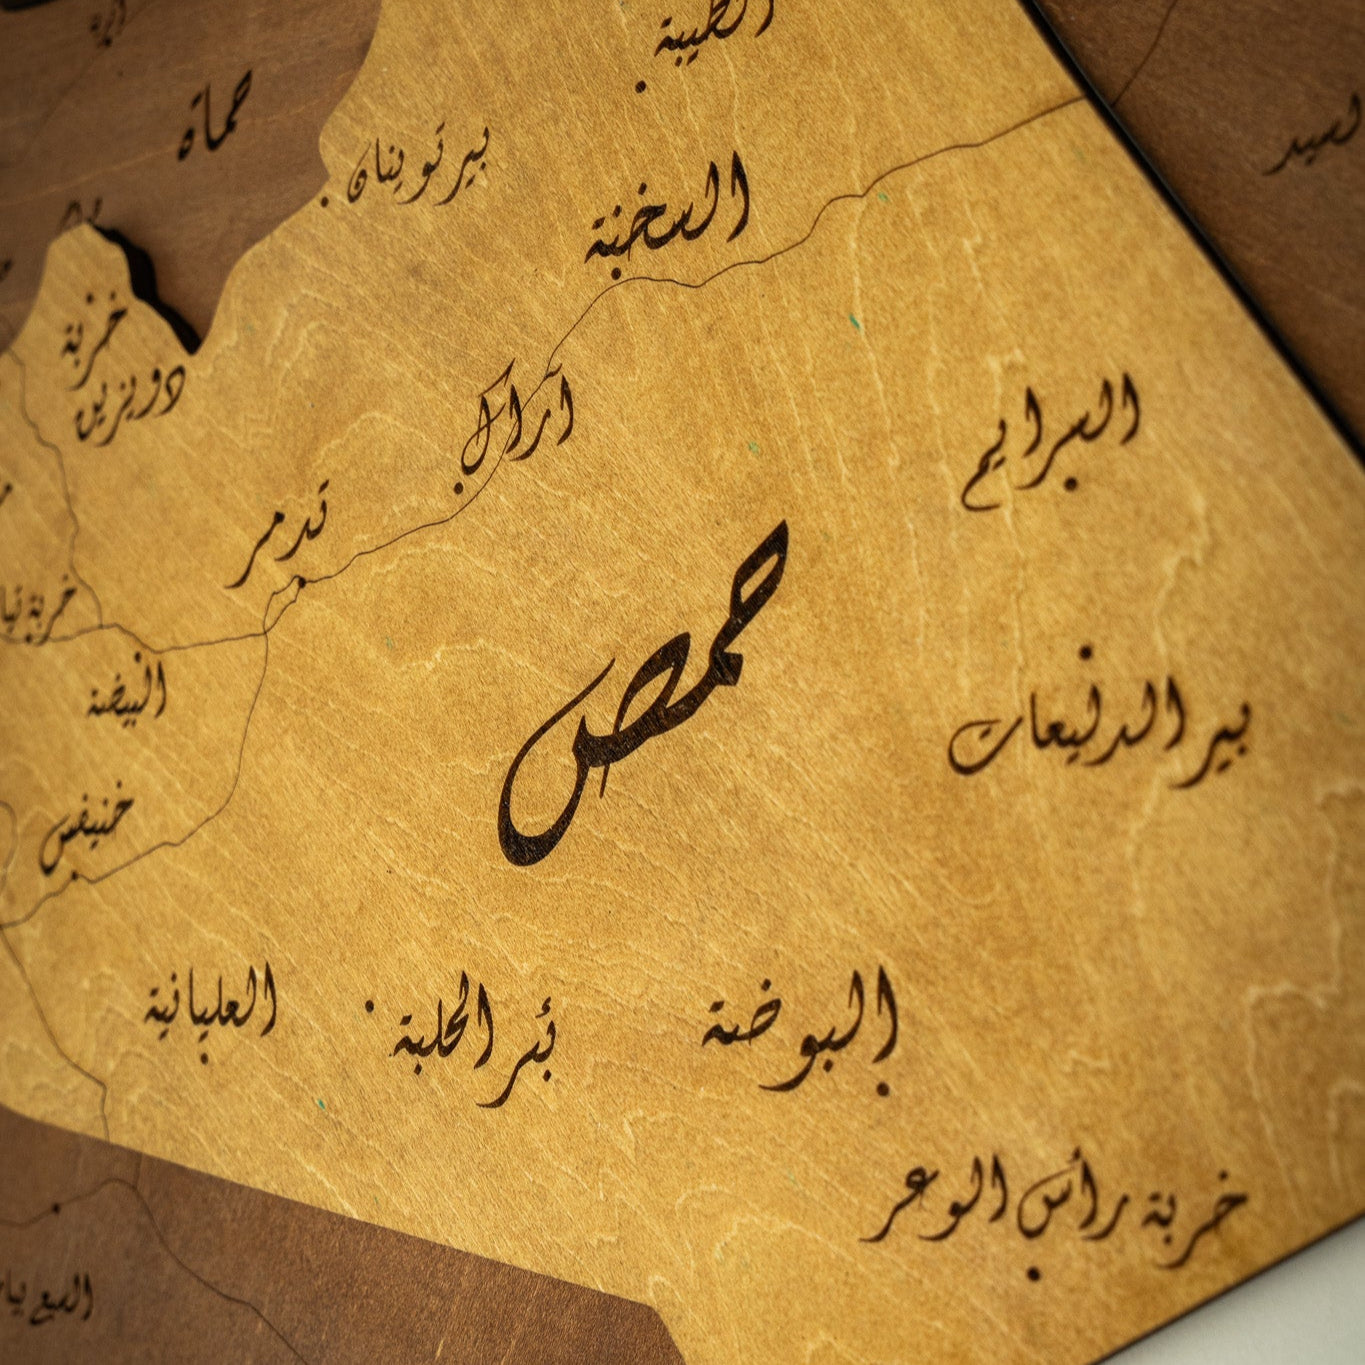 الطيبة
حماة
بير توينان
السخنة
خربة
دويزين
آراك
السرايم
تدمر
حمص
خربة
البيضة
بير الدليعات
خنيفس
العليانية
بئر الحلبة
البوضة
خربة رأس الوعر
السبع بيار